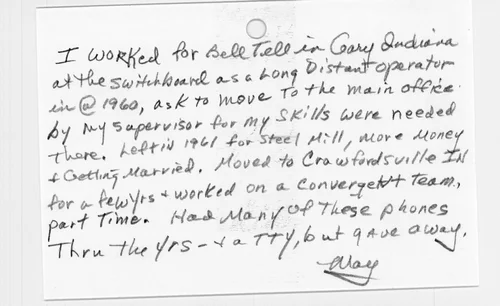 I worked for Bell Tell in Gary Indiana
at the switchboard as a Long Distant operator
in @ 1960, ask to move to the main office
by my supervisor for my skills were needed
there. Left in 1961 for Steel Mill, more money
+ Getting Married. Moved to Crawfordsville IN
for a few yrs + worked on a convergent Team,
part Time. Had Many of These phones
Thru the yrs - + a TTY, but gave away.